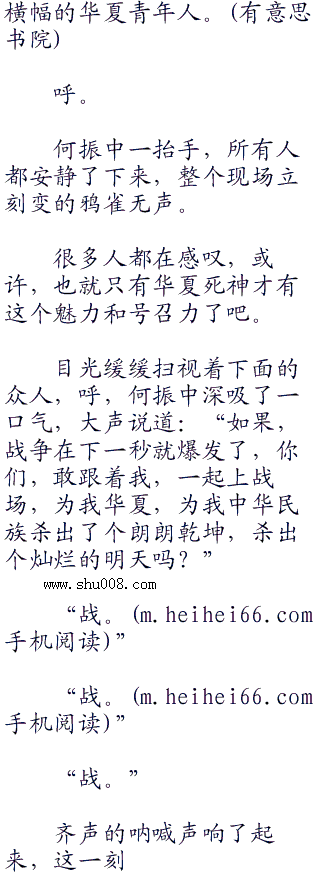 横幅的华夏青年人。(有意思
书院)
呼。
何振中一抬手，所有人
都安静了下来，整个现场立
刻变的鸦雀无声。
很多人都在感叹，或
许，也就只有华夏死神才有
这个魅力和号召力了吧。
目光缓缓扫视着下面的
众人，呼，何振中深吸了一
口气，大声说道：“如果，
战争在下一秒就爆发了，你
们，敢跟着我，一起上战
场，为我华夏，为我中华民
族杀出了个朗朗乾坤，杀出
个灿烂的明天吗？”
www.shu008.com
“战。(m.heihei66.com
手机阅读)”
“战。(m.heihei66.com
手机阅读)”
“战。”
齐声的呐喊声响了起
来，这一刻